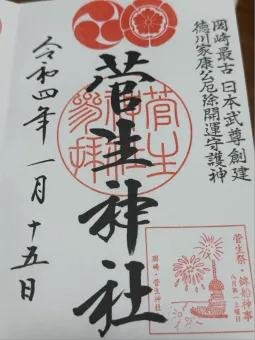 岡崎最古 日本武尊創建
徳川家康公厄除開運守護神
菅生神社
菅生
神社
参拝
令和四年一月十五日
菅生祭・鉾船神事
八月第一土曜日
岡崎・菅生神社